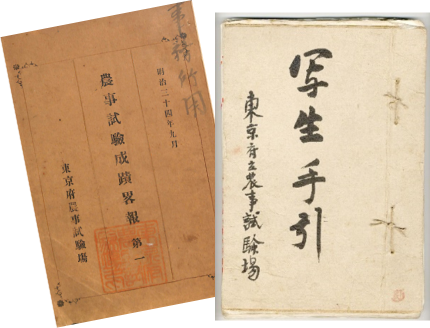 事務所用
明治二十四年九月
農事試驗成蹟畧報 第一
東京府農事試驗場
写生手引
東京府立農事試験場